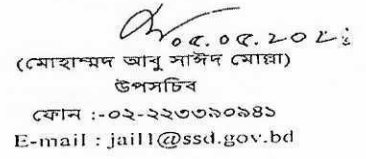 ০৫.০৫.২০২
(মোহাম্মদ আবু সাঈদ মোল্লা)
উপসচিব
ফোন :-০২-২২৩৩৯০৯৪১
E-mail : jail1@ssd.gov.bd